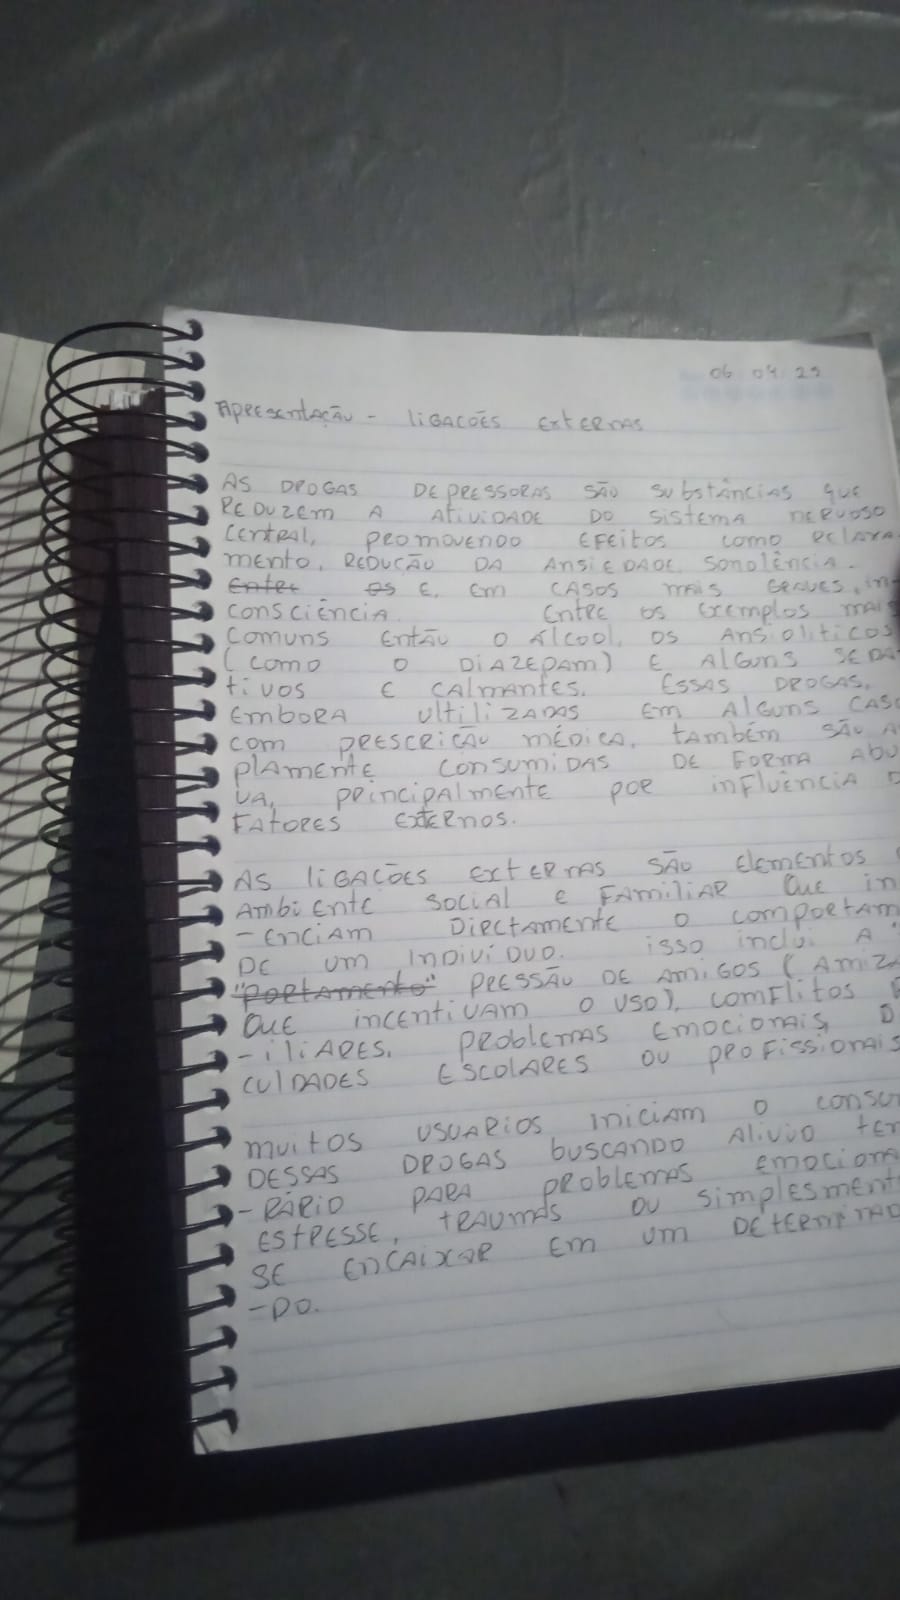 06 04 25
Apresentação - ligações externas
As drogas depressoras são substâncias que
reduzem a atividade do sistema nervoso
central, promovendo efeitos como relaxa
mento, redução da ansiedade, sonolência.
Enter os e, em casos mais graves, in-
consciência. Entre os exemplos mais
comuns então o álcool, os ansioliticos
(como o diazepam) e alguns seda
tivos e calmantes. Essas drogas,
embora ultilizadas em alguns caso
com prescrição médica, também são a
plamente consumidas de forma abu
va, principalmente por influência d
fatores externos.
As ligações externas são elementos
ambiente social e familiar que in
-enciam diretamente o comportam
de um indivíduo. isso inclui a
"portamento" pressão de amigos (amiza
que incentivam o uso), comflitos f
-iliares, problemas emocionais, d
culdades escolares ou profissionais
muitos usuarios iniciam o consu
dessas drogas buscando alivio tem
-rário para problemas emociona
estresse, traumas ou simplesment
se encaixar em um determinad
-do.